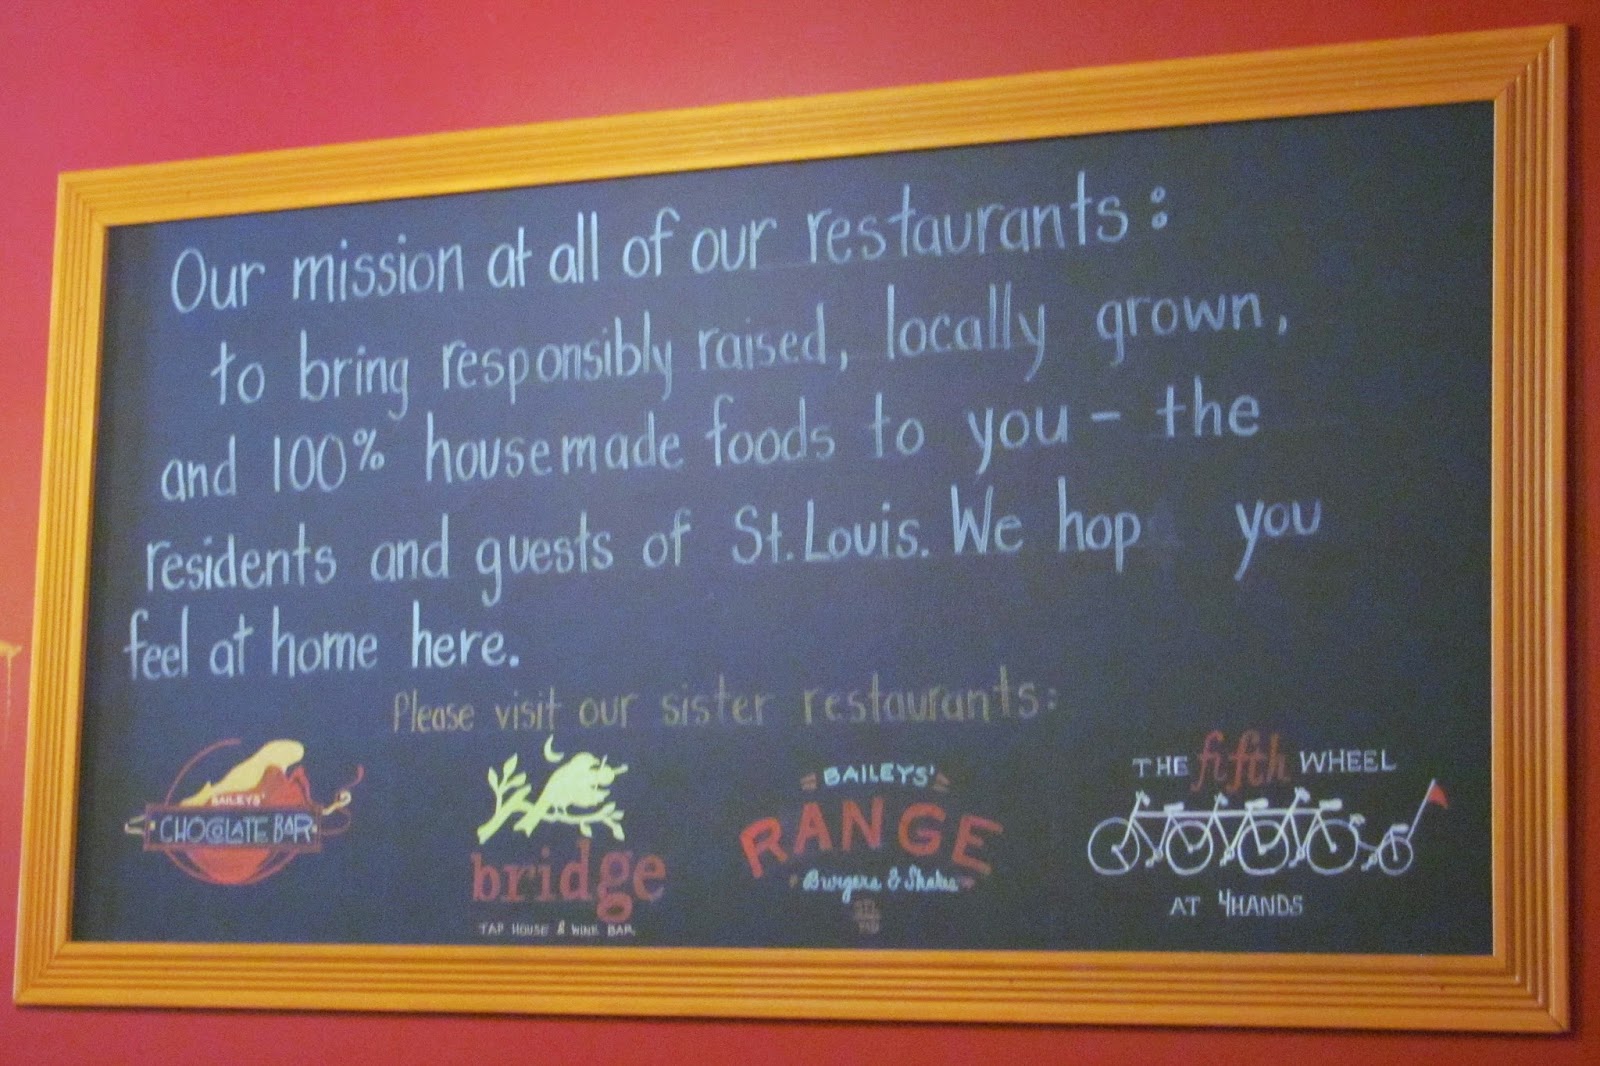 Our mission at all of our restaurants:
to bring responsibly raised, locally grown,
and 100% housemade foods to you - the
residents and guests of St. Louis. We hop you
feel at home here.
Please visit our sister restaurants:
BAILEYS'
CHOCOLATE BAR
bridge
TAP HOUSE & WINE BAR
BAILEYS'
RANGE
Burgers & Shakes
THE fifth WHEEL
AT 4HANDS